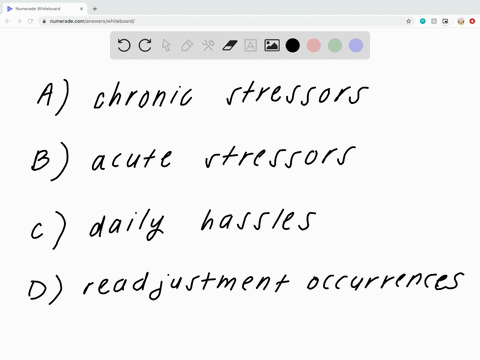 Numerade Whiteboard
numerade.com/answers/whiteboard/
A) chronic stressors
B) acute stressors
C) daily hassles
D) readjustment occurrences